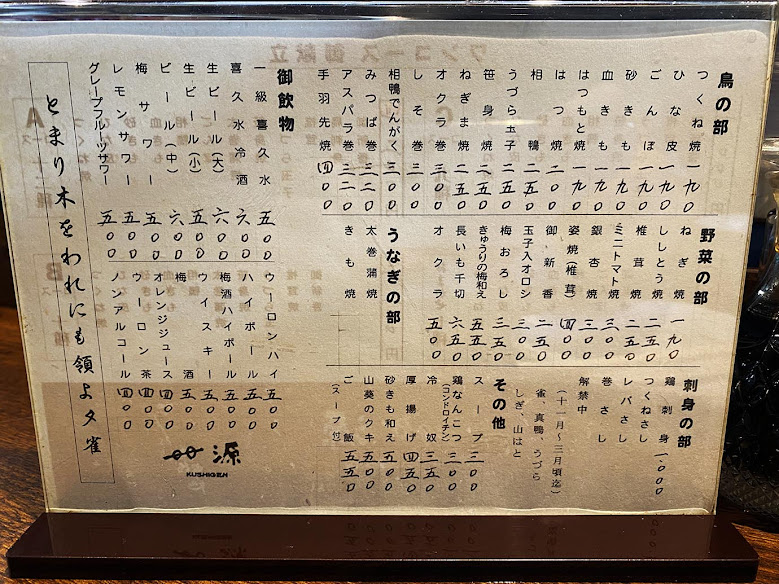 鳥の部
つくね焼 一九〇
ひな皮 一九〇
ごんぼ 一九〇
砂きも 一九〇
血きも 一九〇
はつもと焼 一九〇
はつ焼 二〇〇
相鴨 二五〇
うづら玉子 二五〇
笹身焼 二五〇
ねぎま焼 二五〇
オクラ巻 三〇〇
しそ巻 三〇〇
相鴨でんがく 三〇〇
みつば巻 三二〇
アスパラ巻 三二〇
手羽先焼 四〇〇
野菜の部
ねぎ焼 一九〇
ししとう焼 二五〇
椎茸焼 二五〇
ミニトマト焼 三〇〇
銀杏焼 三〇〇
姿焼(椎茸) 四〇〇
御新香 二五〇
玉子入オロシ 三〇〇
梅おろし 三五〇
きゅうりの梅和え 五五〇
長いも千切 六五〇
オクラ 五〇〇
うなぎの部
太巻蒲焼
きも焼
刺身の部
鶏刺身 一〇〇〇
つくねさし
レバさし
巻さし
解禁中
(十一月〜三月頃迄)
雀、真鴨、うづら
しぎ、山はと
その他
スープ 三〇〇
鶏なんこつ(コンドロイチン) 三〇〇
冷奴 三五〇
厚揚げ 四五〇
砂きも和え 五〇〇
山葵のクキ 五五〇
ご飯(スープ付) 五五〇
御飲物
一級喜久水 五〇〇
喜久水冷酒 六〇〇
生ビール(大) 六〇〇
生ビール(小) 五〇〇
ビール(中) 六〇〇
梅サワー 五〇〇
レモンサワー 五〇〇
グレープフルーツサワー 五〇〇
ウーロンハイ 五〇〇
ハイボール 五〇〇
梅酒ハイボール 五〇〇
ウイスキー 五〇〇
梅酒 五〇〇
オレンジジュース 四〇〇
ウーロン茶 四〇〇
ノンアルコール 四〇〇
とまり木をわれにも領よ夕雀
源
KUSHIGEN